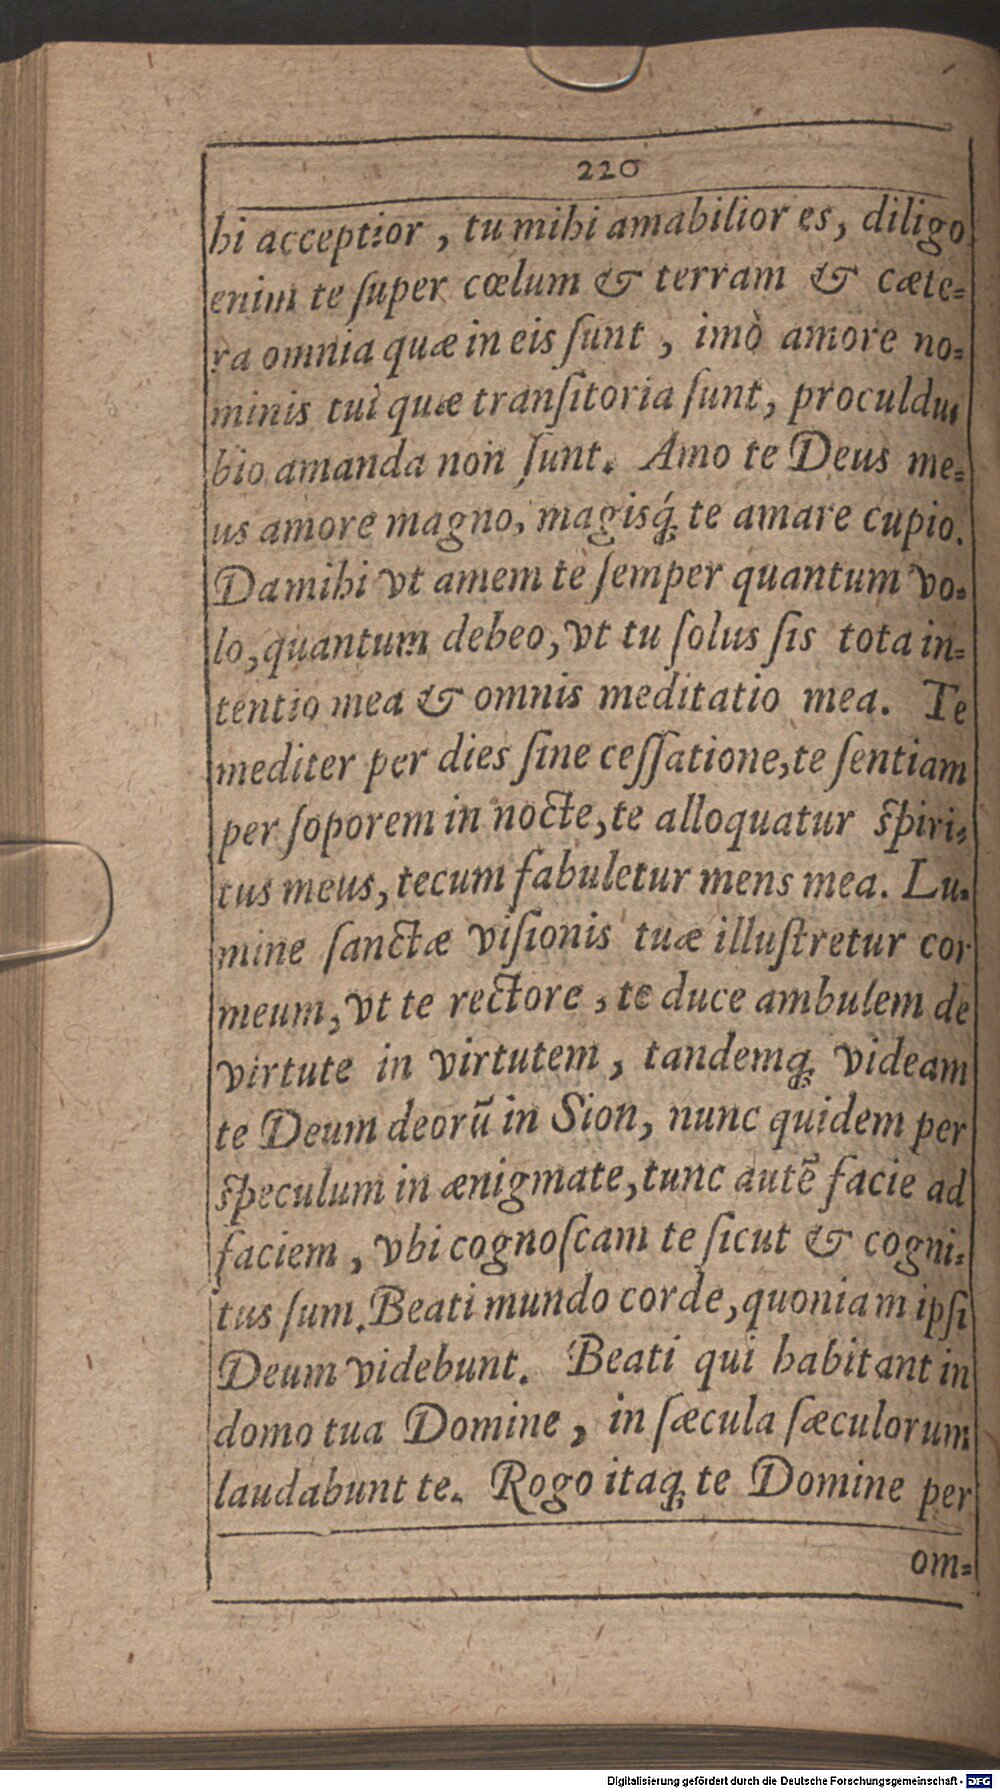 220
hi acceptior, tu mihi amabilior es, diligo
enim te ſuper cœlum & terram & cæte-
ra omnia quæ in eis ſunt, imò amore no-
minis tuì quæ tranſitoria ſunt, proculdu
bio amanda non ſunt. Amo te Deus me-
us amore magno, magisq́; te amare cupio.
Da mihi vt amem te ſemper quantum vo-
lo, quantum debeo, vt tu ſolus ſis tota in-
tentio mea & omnis meditatio mea. Te
mediter per dies ſine ceſſatione, te ſentiam
per ſoporem in nocte, te alloquatur ſpiri-
tus meus, tecum fabuletur mens mea. Lu-
mine ſanctæ viſionis tuæ illuſtretur cor
meum, vt te rectore, te duce ambulem de
virtute in virtutem, tandemq; videam
te Deum deorū in Sion, nunc quidem per
ſpeculum in ænigmate, tunc autē facie ad
faciem, vbi cognoſcam te ſicut & cogni-
tus ſum. Beati mundo corde, quoniam ipſi
Deum videbunt. Beati qui habitant in
domo tua Domine, in ſæcula ſæculorum
laudabunt te. Rogo itaq; te Domine per
om-
Digitalisierung gefördert durch die Deutsche Forschungsgemeinschaft - DFG